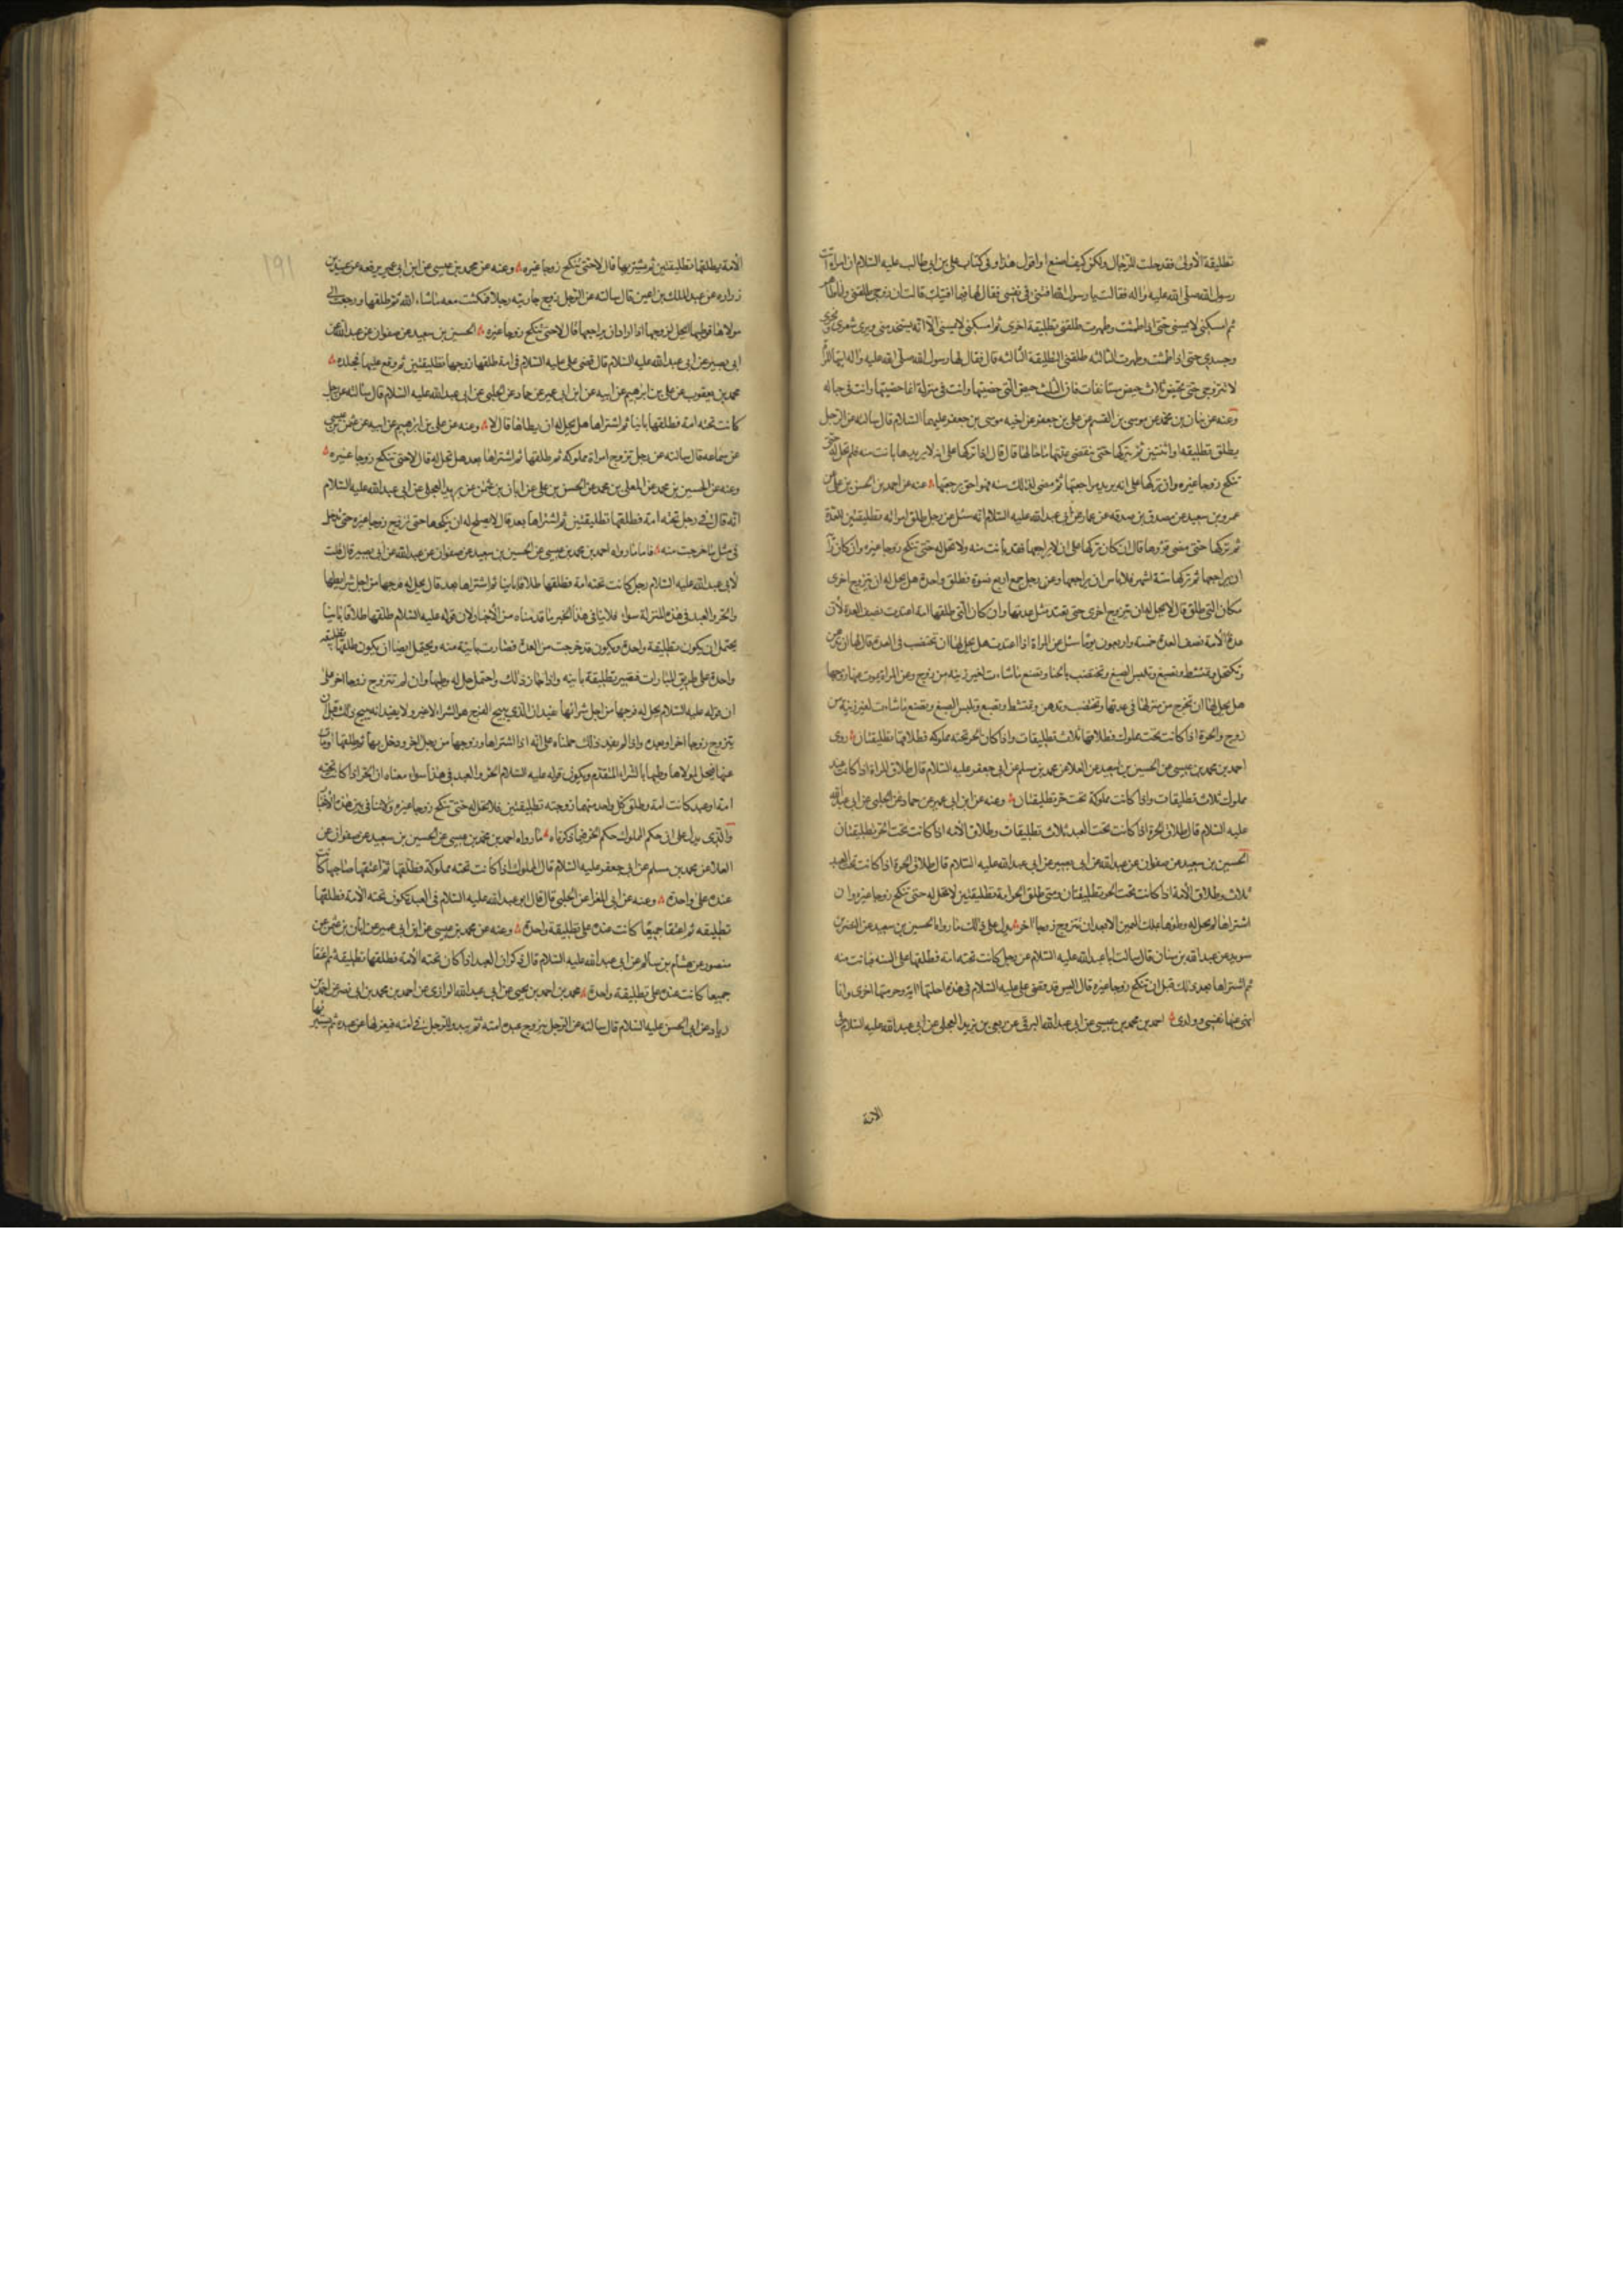 تطليقة الاولى فقد حلت للرجال ولكن كيف اصنع او اقول هذا وفى كتاب على بن ابى طالب عليه السلام ان امراة اتت
رسول الله صلى الله عليه واله فقالت يا رسول الله افتنى فى نفسى فقال لها فيما افتيك قالت ان زوجى طلقنى وانا طاهر
ثم امسكنى لا يمسنى حتى اذا طمثت وطهرت طلقنى تطليقة اخرى ثم امسكنى لا يمسنى الا انه يستخدمنى ويرى شعرى ونحرى
وجسدى حتى اذا طمثت وطهرت الثالثه طلقنى التطليقة الثالثه قال فقال لها رسول الله صلى الله عليه واله ايتها المراة
لا تتزوجى حتى تحيض ثلاث حيض مستانفات فان الثلث حيض التى حضتيها وانت فى منزله انما حضتيها وانت فى حباله
وعنه عن بنان بن محمد عن موسى بن القسم عن على بن جعفر عن اخيه موسى بن جعفر عليهما السلام قال سالته عن الرجل
يطلق تطليقه او اثنتين ثم يتركها حتى تنقضى عدتها ما حالها قال قال اذا تركها على انه لا يريدها بانت منه فلم تحل له حتى
تنكح زوجا غيره وان تركها على انه يريد مراجعتها ثم مضى لذلك سنه فهو احق برجعتها عنه عن احمد بن الحسن بن على عن
عمرو بن سعيد عن مصدق بن صدقه عن عمار عن ابى عبد الله عليه السلام انه سئل عن رجل طلق امراته تطليقتين للعدة
ثم تركها حتى مضى قروءها قال ان كان تركها على ان لا يراجعها فقد بانت منه ولا تحل له حتى تنكح زوجا غيره وان كان
ان يراجعها ثم تركها ستة اشهر فلا باس ان يراجعها وعن رجل جمع اربع نسوة فطلق واحدة هل يحل له ان يتزوج اخرى
مكان التى طلق قال لا يحل له ان يتزوج اخرى حتى يعتد مثل عدتها وان كان التى طلقها امة اعتدت نصف العدة لان
عدة الامة نصف العدة خمسة واربعون يوما سئل عن المراة اذا اعتدت هل يحل لها ان تختضب فى العدة قال لها ان تدهن
وتكتحل وتمتشط وتصبغ وتلبس الصبغ وتختضب بالحنا وتصنع ما شاءت لغير زينه من زوج وعن المراة يموت عنها زوجها
هل يحل لها ان تخرج من منزلها فى عدتها وتختضب وتدهن وتمتشط وتصبغ وتلبس الصبغ وتصنع ما شاءت لغير زينة من
زوج والحرة اذا كانت تحت مملوك فطلاقها ثلاث تطليقات واذا كان الحر تحته مملوكه فطلاقها تطليقتان روى
احمد بن محمد بن عيسى عن الحسين بن سعيد عن العلا عن محمد بن مسلم عن ابى جعفر عليه السلام قال طلاق المراة اذا كانت عند
مملوك ثلاث تطليقات واذا كانت مملوكة تحت حر تطليقتان وعنه عن ابن ابى عمير عن حماد عن الحلبى عن ابى عبد الله
عليه السلام قال طلاق الحرة اذا كانت تحت العبد ثلاث تطليقات وطلاق الامه اذا كانت تحت الحر تطليقتان
الحسين بن سعيد عن صفوان عن عبد الله عن ابى بصير عن ابى عبد الله عليه السلام قال طلاق الحرة اذا كانت تحت العبد
ثلاث وطلاق الامة اذا كانت تحت الحر تطليقتان ومتى طلق الحر امة تطليقتين لا تحل له حتى تنكح زوجا غيره وان
اشتراها لم يحل له وطؤها بملك اليمين الا بعد ان تتزوج زوجا اخر يدل على ذلك ما رواه الحسين بن سعيد عن النضر بن
سويد عن عبد الله بن سنان قال سالت ابا عبد الله عليه السلام عن رجل كانت تحته امة فطلقها على السنه فبانت منه
ثم اشتراها بعد ذلك قبل ان تنكح زوجا غيره قال اليس قد قضى على عليه السلام فى هذه احلتها اية وحرمتها اخرى وانا
انهى عنها نفسى وولدى احمد بن محمد بن عيسى عن ابى عبد الله البرقى عن ربعى عن يزيد العجلى عن ابى عبد الله عليه السلام فى
الامة
١٩١
الامة يطلقها تطليقتين ثم يشتريها قال لا حتى تنكح زوجا غيره وعنه عن محمد بن عيسى عن ابن ابى عمير رفعه عن عبيد بن
زراره عن عبد الملك بن اعين قال سالته عن الرجل زوج جاريته رجلا فمكثت معه ما شاء الله ثم طلقها ورجعت الى
مولاها فوطيها ايحل لزوجها اذا اراد ان يراجعها قال لا حتى تنكح زوجا غيره الحسين بن سعيد عن صفوان عن عبد الله عن
ابى بصير عن ابى عبد الله عليه السلام قال قضى على عليه السلام فى امة طلقها زوجها تطليقتين ثم وقع عليها فجلده
محمد بن يعقوب عن على بن ابرهيم عن ابيه عن ابن ابى عمير عن حماد عن الحلبى عن ابى عبد الله عليه السلام قال سالته عن رجل
كانت تحته امة فطلقها باينا ثم اشتراها هل يحل له ان يطاها قال لا وعنه عن على بن ابرهيم عن ابيه عن عثمن بن عيسى
عن سماعه قال سالته عن رجل تزوج امراة مملوكه ثم طلقها ثم اشتراها بعد هل تحل له قال لا حتى تنكح زوجا غيره
وعنه عن الحسين بن محمد عن المعلى بن محمد عن الحسن بن على عن ابان بن عثمن عن بريد العجلى عن ابى عبد الله عليه السلام
انه قال فى رجل تحته امة فطلقها تطليقتين ثم اشتراها بعد قال لا يصلح له ان ينكحها حتى تزوج زوجا غيره وحتى تدخل
فى مثل ما خرجت منه فاما ما رواه احمد بن محمد بن عيسى عن الحسين بن سعيد عن صفوان عن عبد الله عن ابى بصير قال قلت
لابى عبد الله عليه السلام رجل كانت تحته امة فطلقها طلاقا باينا ثم اشتراها بعد قال يحل له فرجها من اجل شرايها
والحر والعبد فى هذه المنزلة سواء فلا ينافى هذا الخبر ما قدمناه من الاخبار لان قوله عليه السلام طلقها طلاقا باينا
يحتمل ان يكون تطليقة واحدة ويكون قد خرجت من العدة فصارت باينة منه ويحتمل ايضا ان يكون طلقها تطليقه
واحدة على طريق المبارات فتصير تطليقة باينه واذا جاز ذلك واحتمل حل له وطيها وان لم تتزوج زوجا اخر على
ان قوله عليه السلام يحل له فرجها من اجل شرائها يفيد ان الذى يبيح الفرج هو الشراء لا غير ولا يفيد انه يبيح ذلك قبل ان
يتزوج زوجا اخر او بعده واذا لم يفيد ذلك حملناه على انه اذا اشتراها وزوجها من رجل اخر ودخل بها ثم طلقها او مات
عنها فيحل لمولاها وطيها بالشراء المتقدم ويكون قوله عليه السلام الحر والعبد فى هذا سواء معناه ان الحر اذا كانت تحته
امة او عبد كانت امة وطلق كل واحد منهما زوجته تطليقتين فلا تحل له حتى تنكح زوجا غيره ولا تنافى بين هذه الاخبار
والذى يدل على ان حكم المملوك حكم الحر فيما ذكرناه ما رواه احمد بن محمد بن عيسى عن الحسين بن سعيد عن صفوان عن
العلا عن محمد بن مسلم عن ابى جعفر عليه السلام قال المملوك اذا كانت تحته مملوكة فطلقها ثم اعتقها صاحبها كانت
عنده على واحدة وعنه عن ابى المغرا عن الحلبى قال قال ابو عبد الله عليه السلام فى العبد تكون تحته الامة فطلقها
تطليقه ثم اعتقا جميعا كانت عنده على تطليقة واحدة وعنه عن محمد بن عيسى عن ابن ابى عمير عن ابان بن عثمن عن
منصور عن هشام بن سالم عن ابى عبد الله عليه السلام قال ذكر ان العبد اذا كان تحته الامة فطلقها تطليقة ثم اعتقا
جميعا كانت عنده على تطليقة واحدة محمد بن احمد بن يحيى عن ابى عبد الله الرازى عن احمد بن محمد بن ابى نصر عن احمد بن
زياد عن ابى الحسن عليه السلام قال سالته عن الرجل يزوج عبده امته ثم يبدو للرجل فى امته فيعزلها عن عبده ثم يستبرئها